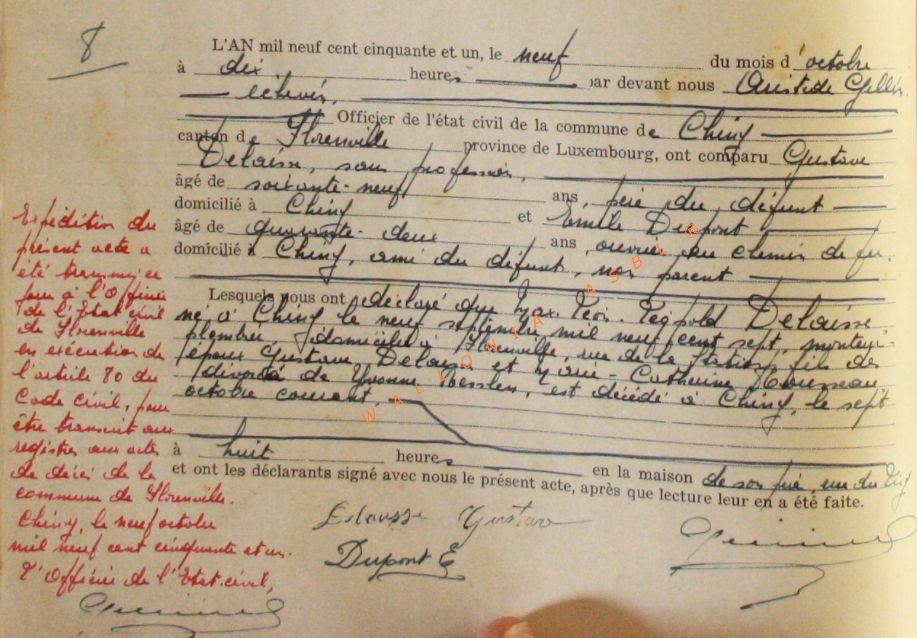 8
L'AN mil neuf cent cinquante et un, le neuf du mois d'octobre
à dix heures par devant nous Aristide
échevin,
Officier de l'état civil de la commune de Chiny
canton de Florenville province de Luxembourg, ont comparu Gustave
Delaisse, sans profession,
âgé de soixante-neuf ans, père du défunt
domicilié à Chiny et Emile Dupont
âgé de quarante-deux ans ouvrier au chemin de fer
domicilié à Chiny, ami du défunt, non parent
Lesquels nous ont déclaré que Léopold Delaisse,
né à Chiny le neuf septembre mil neuf cent sept, monteur-
plombier, domicilié à Florenville, rue de la Station, fils de
époux Gustave Delaisse et Marie-Catherine Rousseau
divorcé de Yvonne est décédé à Chiny, le sept
octobre courant,
à huit heures en la maison de son père, rue du
et ont les déclarants signé avec nous le présent acte, après que lecture leur en a été faite.
Delaisse Gustave
Dupont E
Expédition du
présent acte a
été transmise ce
jour à l'Officier
de l'Etat civil
de Florenville
en exécution de
l'article 80 du
Code civil, pour
être transcrit aux
registres aux actes
de décès de la
commune de Florenville.
Chiny, le neuf octobre
mil neuf cent cinquante et un.
L'Officier de l'Etat-civil,
WALLONIA ASBL ©